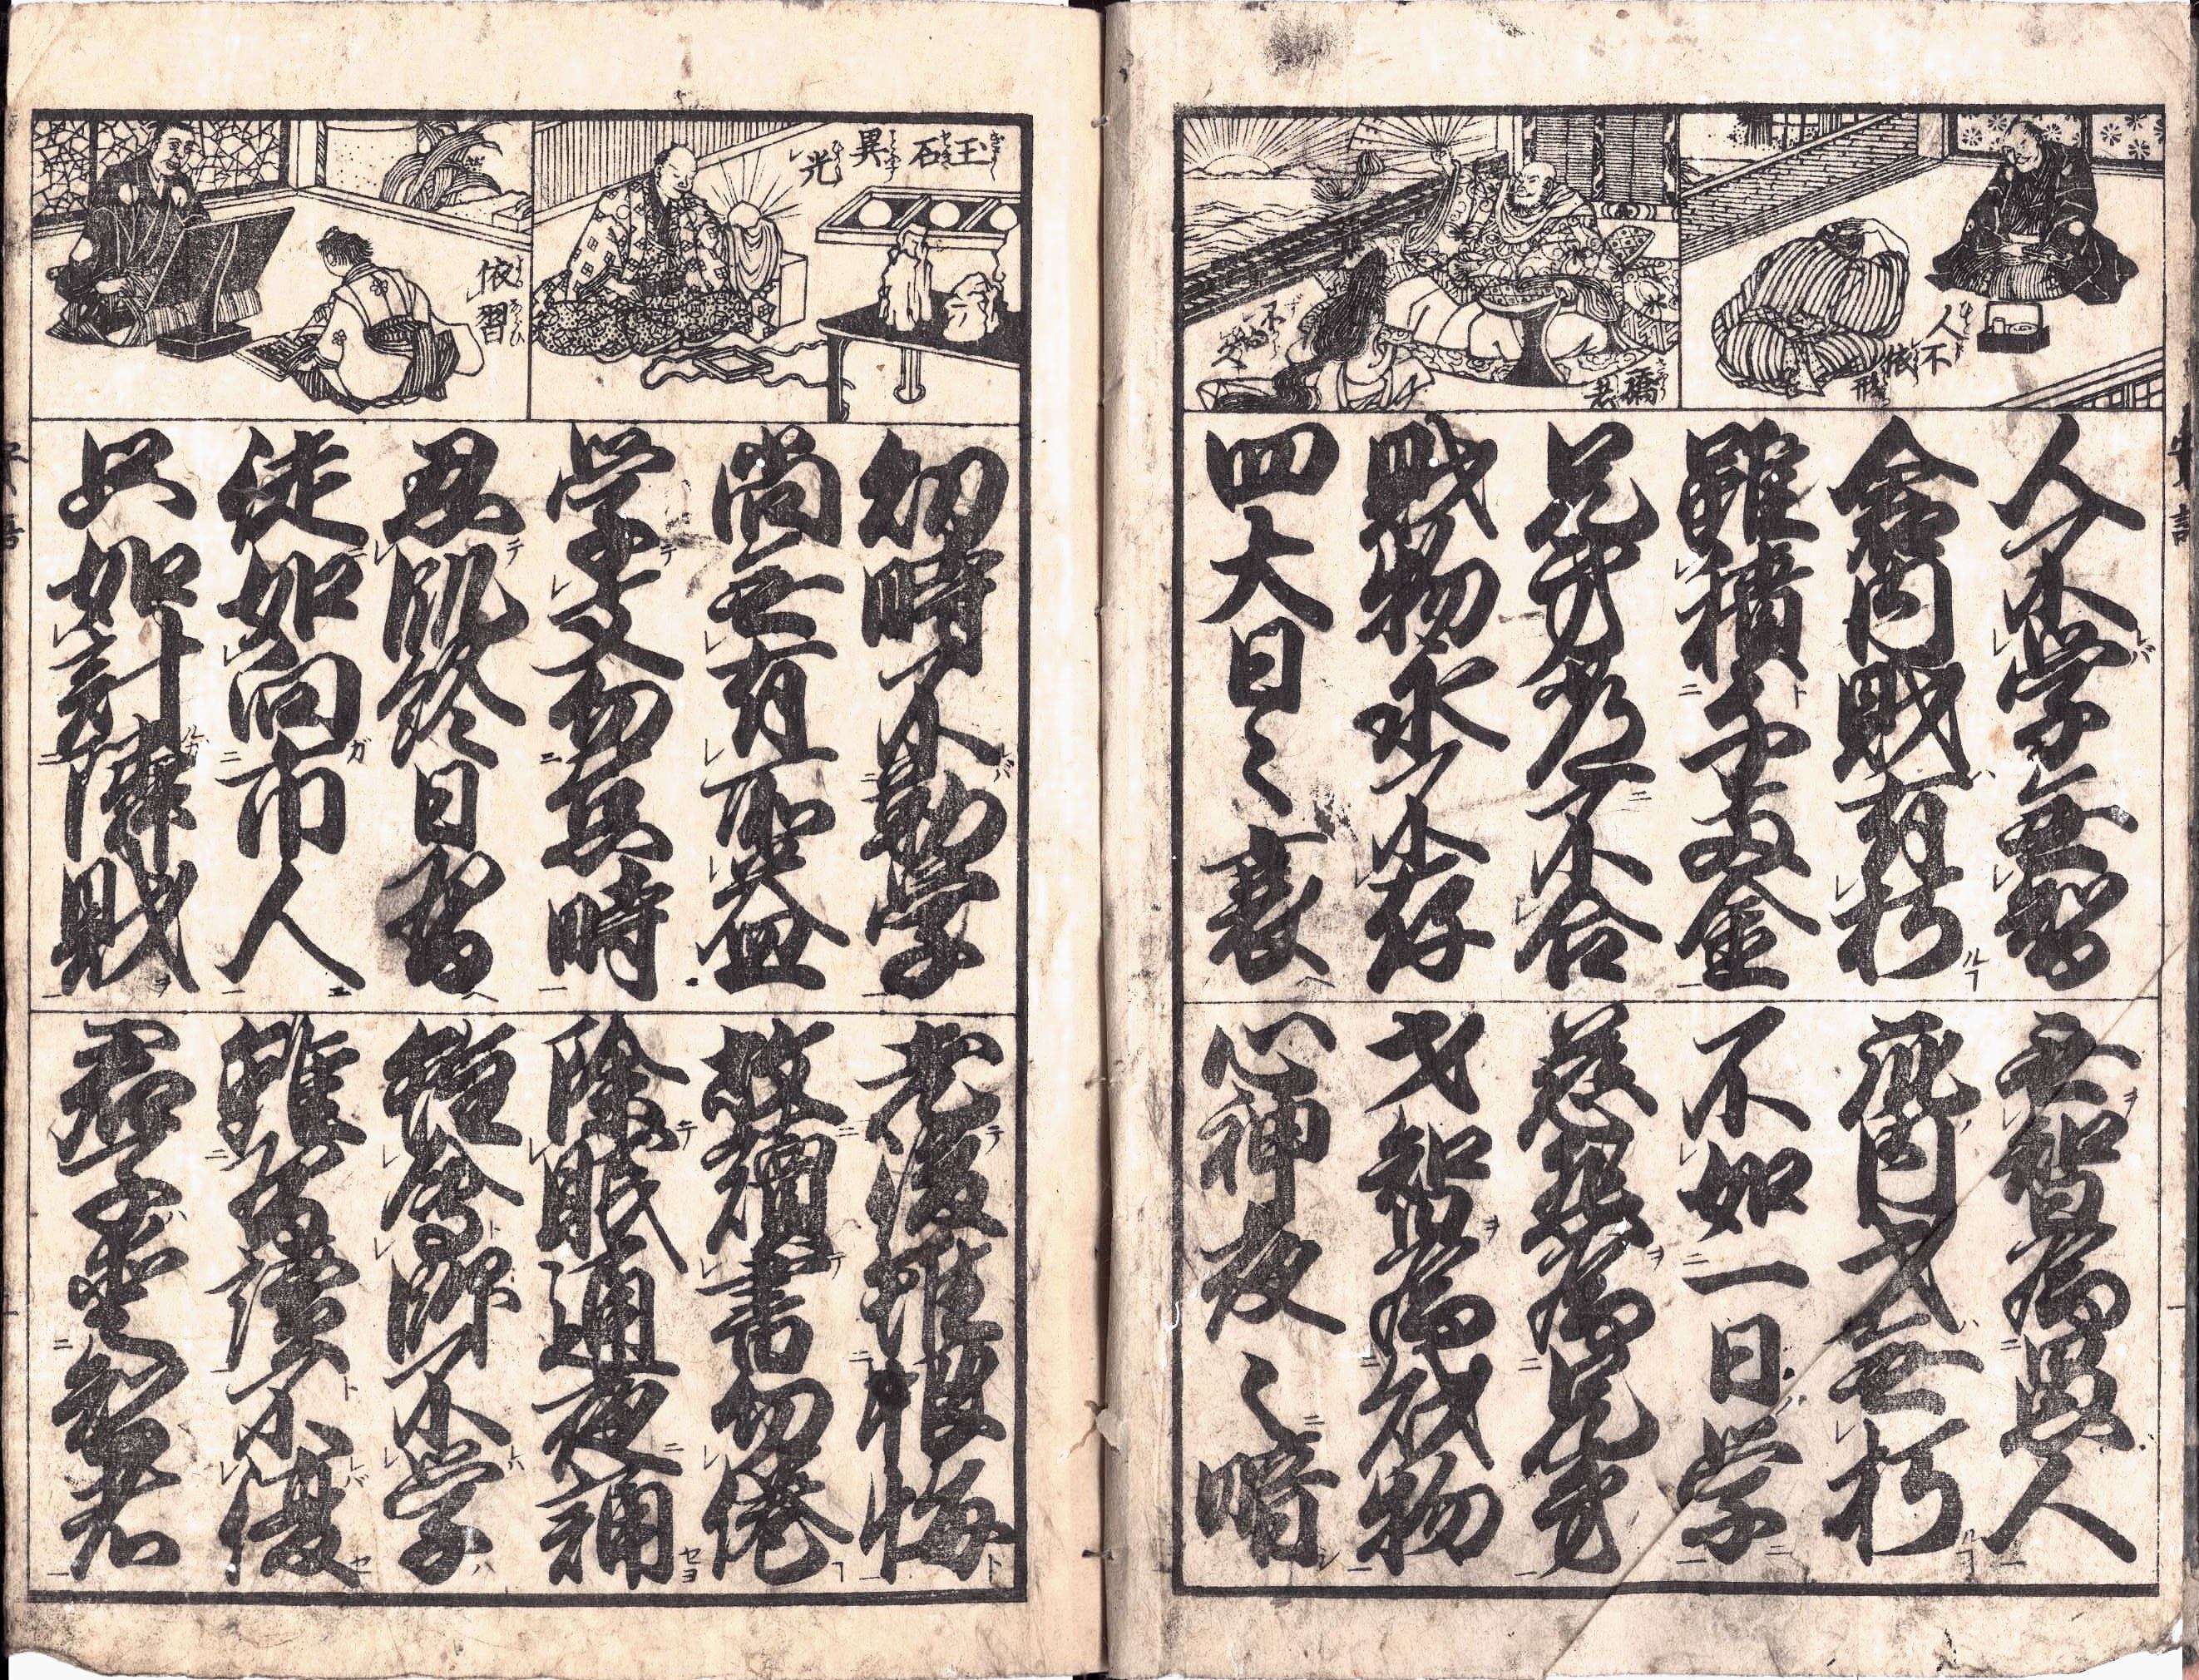 人不依形
人不学無智
无智為愚人
倉内財有朽
身内才无朽
雖積千両金
不如一日学
兄弟常不合
慈悲為兄弟
財物永不存
才智為財物
四大日々衰
心神夜々暗
玉石異光
依習
幼時不勤学
老後雖恨悔
尚无有所益
故読書勿倦
学文勿怠時
除眠通夜誦
忍飢終日習
雖会師不学
徒如向市人
雖習読不復
只如計隣財
君子愛智者